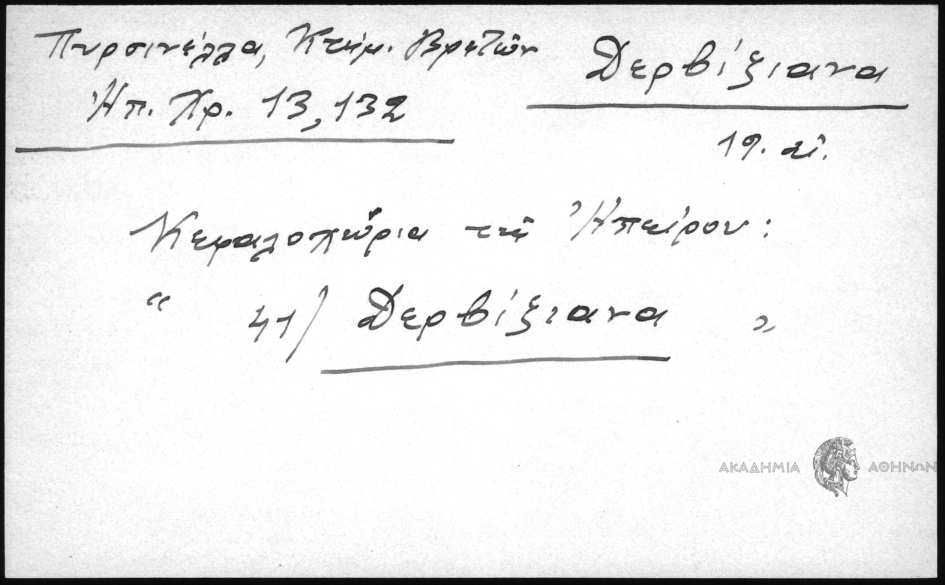 Πυρσινέλλα, Κτημ. Βρετῶν
Ἠπ. Χρ. 13, 132
Δερβίξιανα
19. αἰ.
Κεφαλοχώρια τῆς Ἠπείρου:
“ 41) Δερβίξιανα „
ΑΚΑΔΗΜΙΑ ΑΘΗΝΩΝ